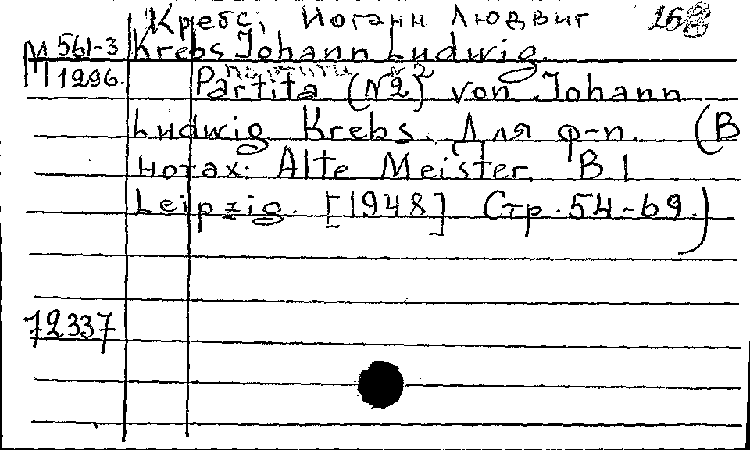 Кребс, Иоганн Людвиг
М 561-3 Krebs Johann Ludwig
М 1296. Partita (№2) von Johann
Ludwig Krebs. Для ф-п. (В
нотах: Alte Meister. B I
Leipzig. [1948] Стр. 54-69.)
72337